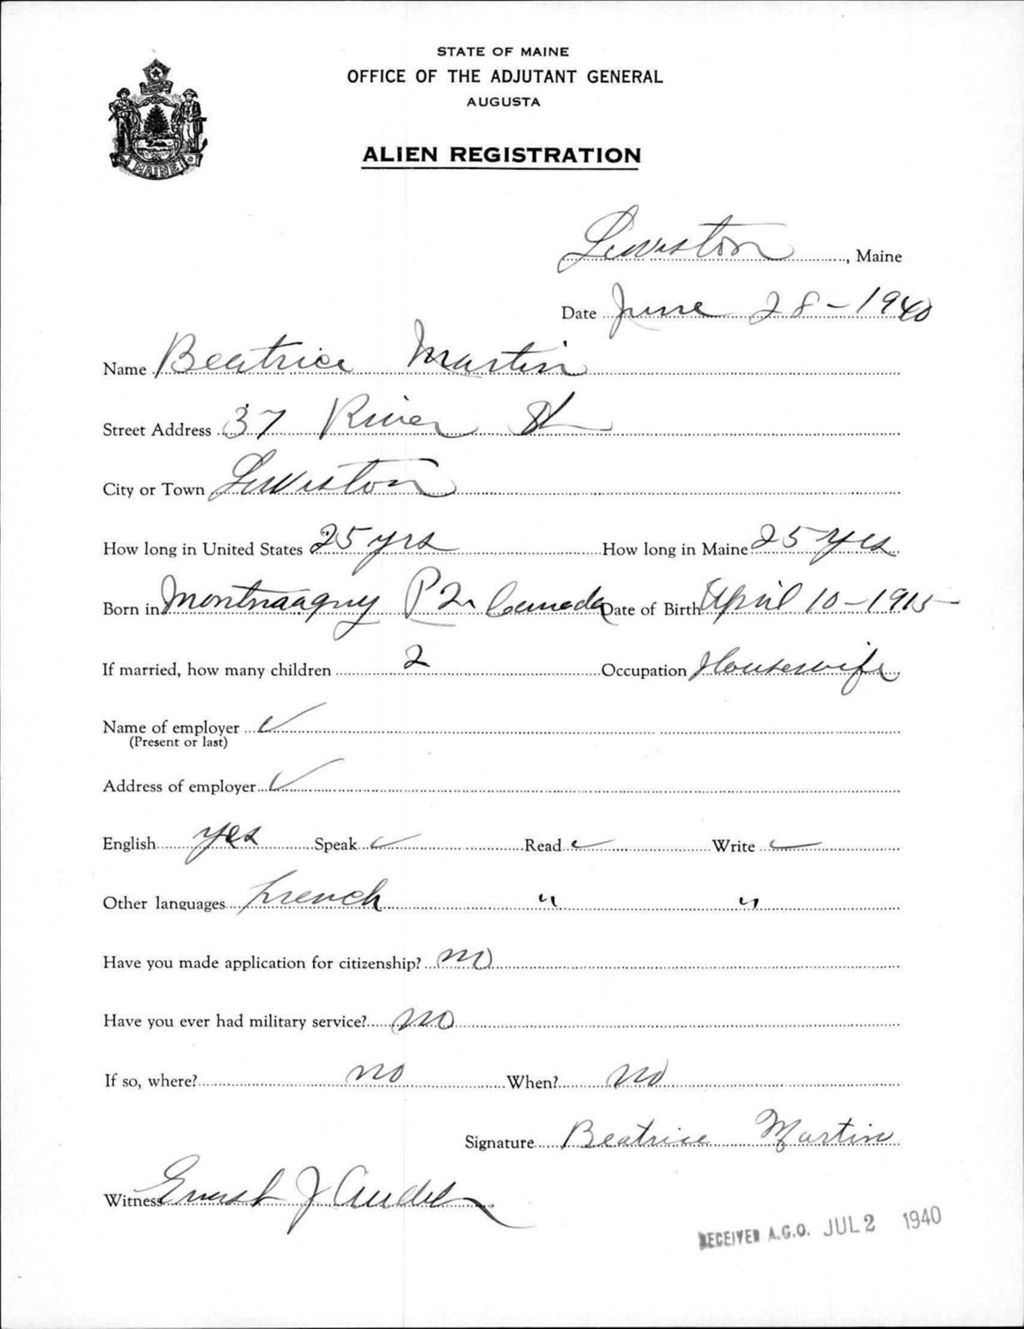 STATE OF MAINE
OFFICE OF THE ADJUTANT GENERAL
AUGUSTA
ALIEN REGISTRATION
MAINE
Lewiston, Maine
Date June 28-1940
Name Beatrice Martin
Street Address 37 River St
City or Town Lewiston
How long in United States 25 yrs How long in Maine 25 yrs
Born in Montmagny P Q Canada Date of Birth April 10-1915
If married, how many children 2 Occupation Housewife
Name of employer ✓
(Present or last)
Address of employer ✓
English yes Speak ✓ Read ✓ Write ✓
Other languages French " "
Have you made application for citizenship? no
Have you ever had military service? no
If so, where? no When? no
Signature Beatrice Martin
Witness Ernest J
RECEIVED A.G.O. JUL 2 1940